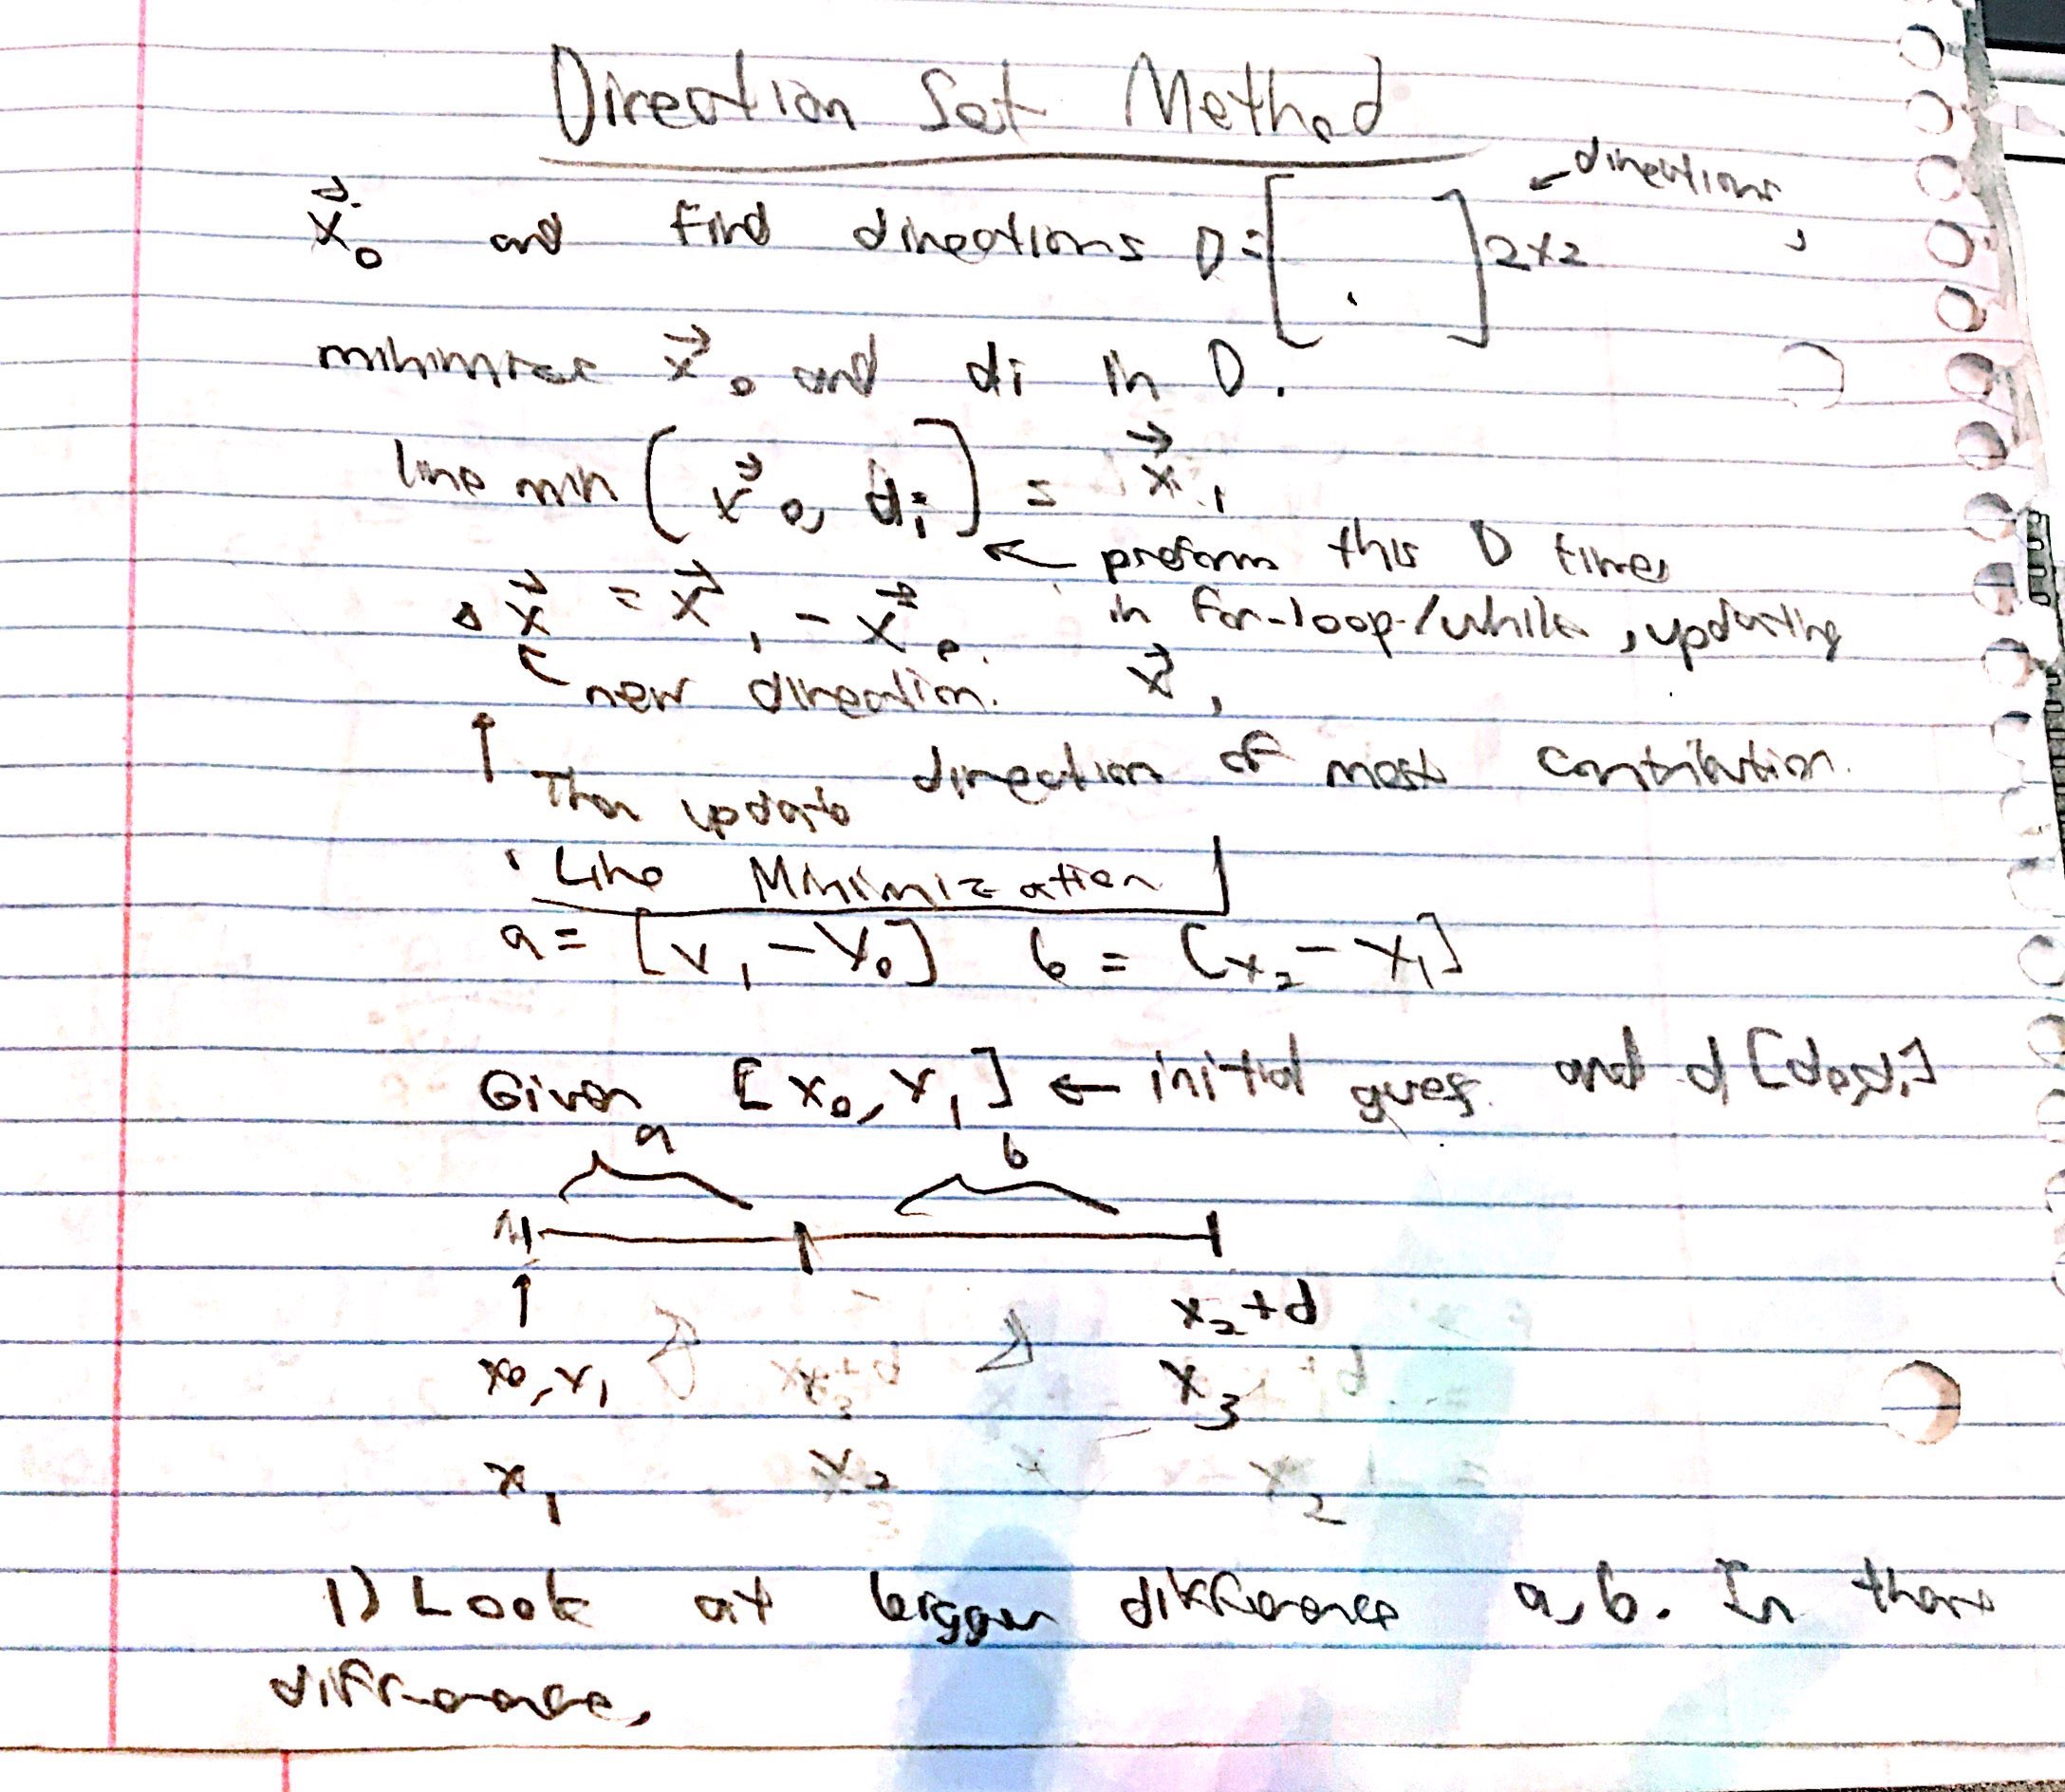 Direction Set Method
← directions
x⃗₀ and find directions D = [ ] 2x2 ,
minimizes x⃗₀ and di in D.
line min ( x⃗₀, di ) = x⃗₁
← preform this D times
Δx⃗ = x⃗₁ - x⃗₀. in for-loop/while, updating
new direction. x⃗₁
↑ Then update direction of most contribution.
· Line Minimization
a = [x₁ - x₀] b = [x₂ - x₁]
Given [x₀, x₁] ← initial guess and d [d₀, d₁]
a b
↑ x₂ + d
x₀, x₁ x₃
x₁ x₂ x₂
1) Look at bigger difference a, b. In
difference,